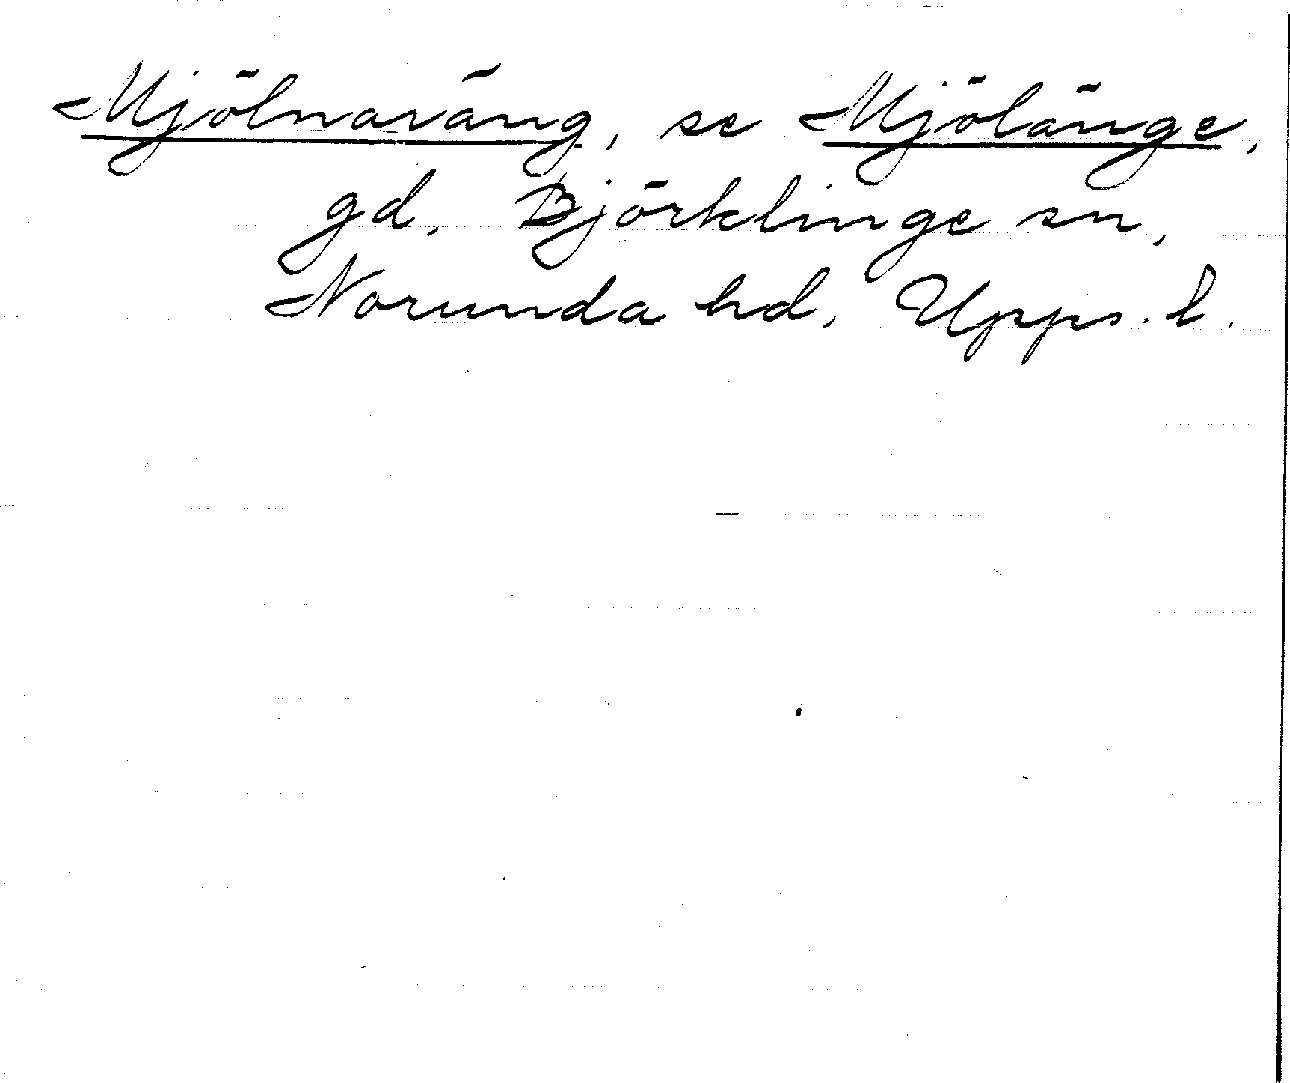 Mjölnaräng, se Mjölänge,
gd, Björklinge sn,
Norunda hd, Upps. l.